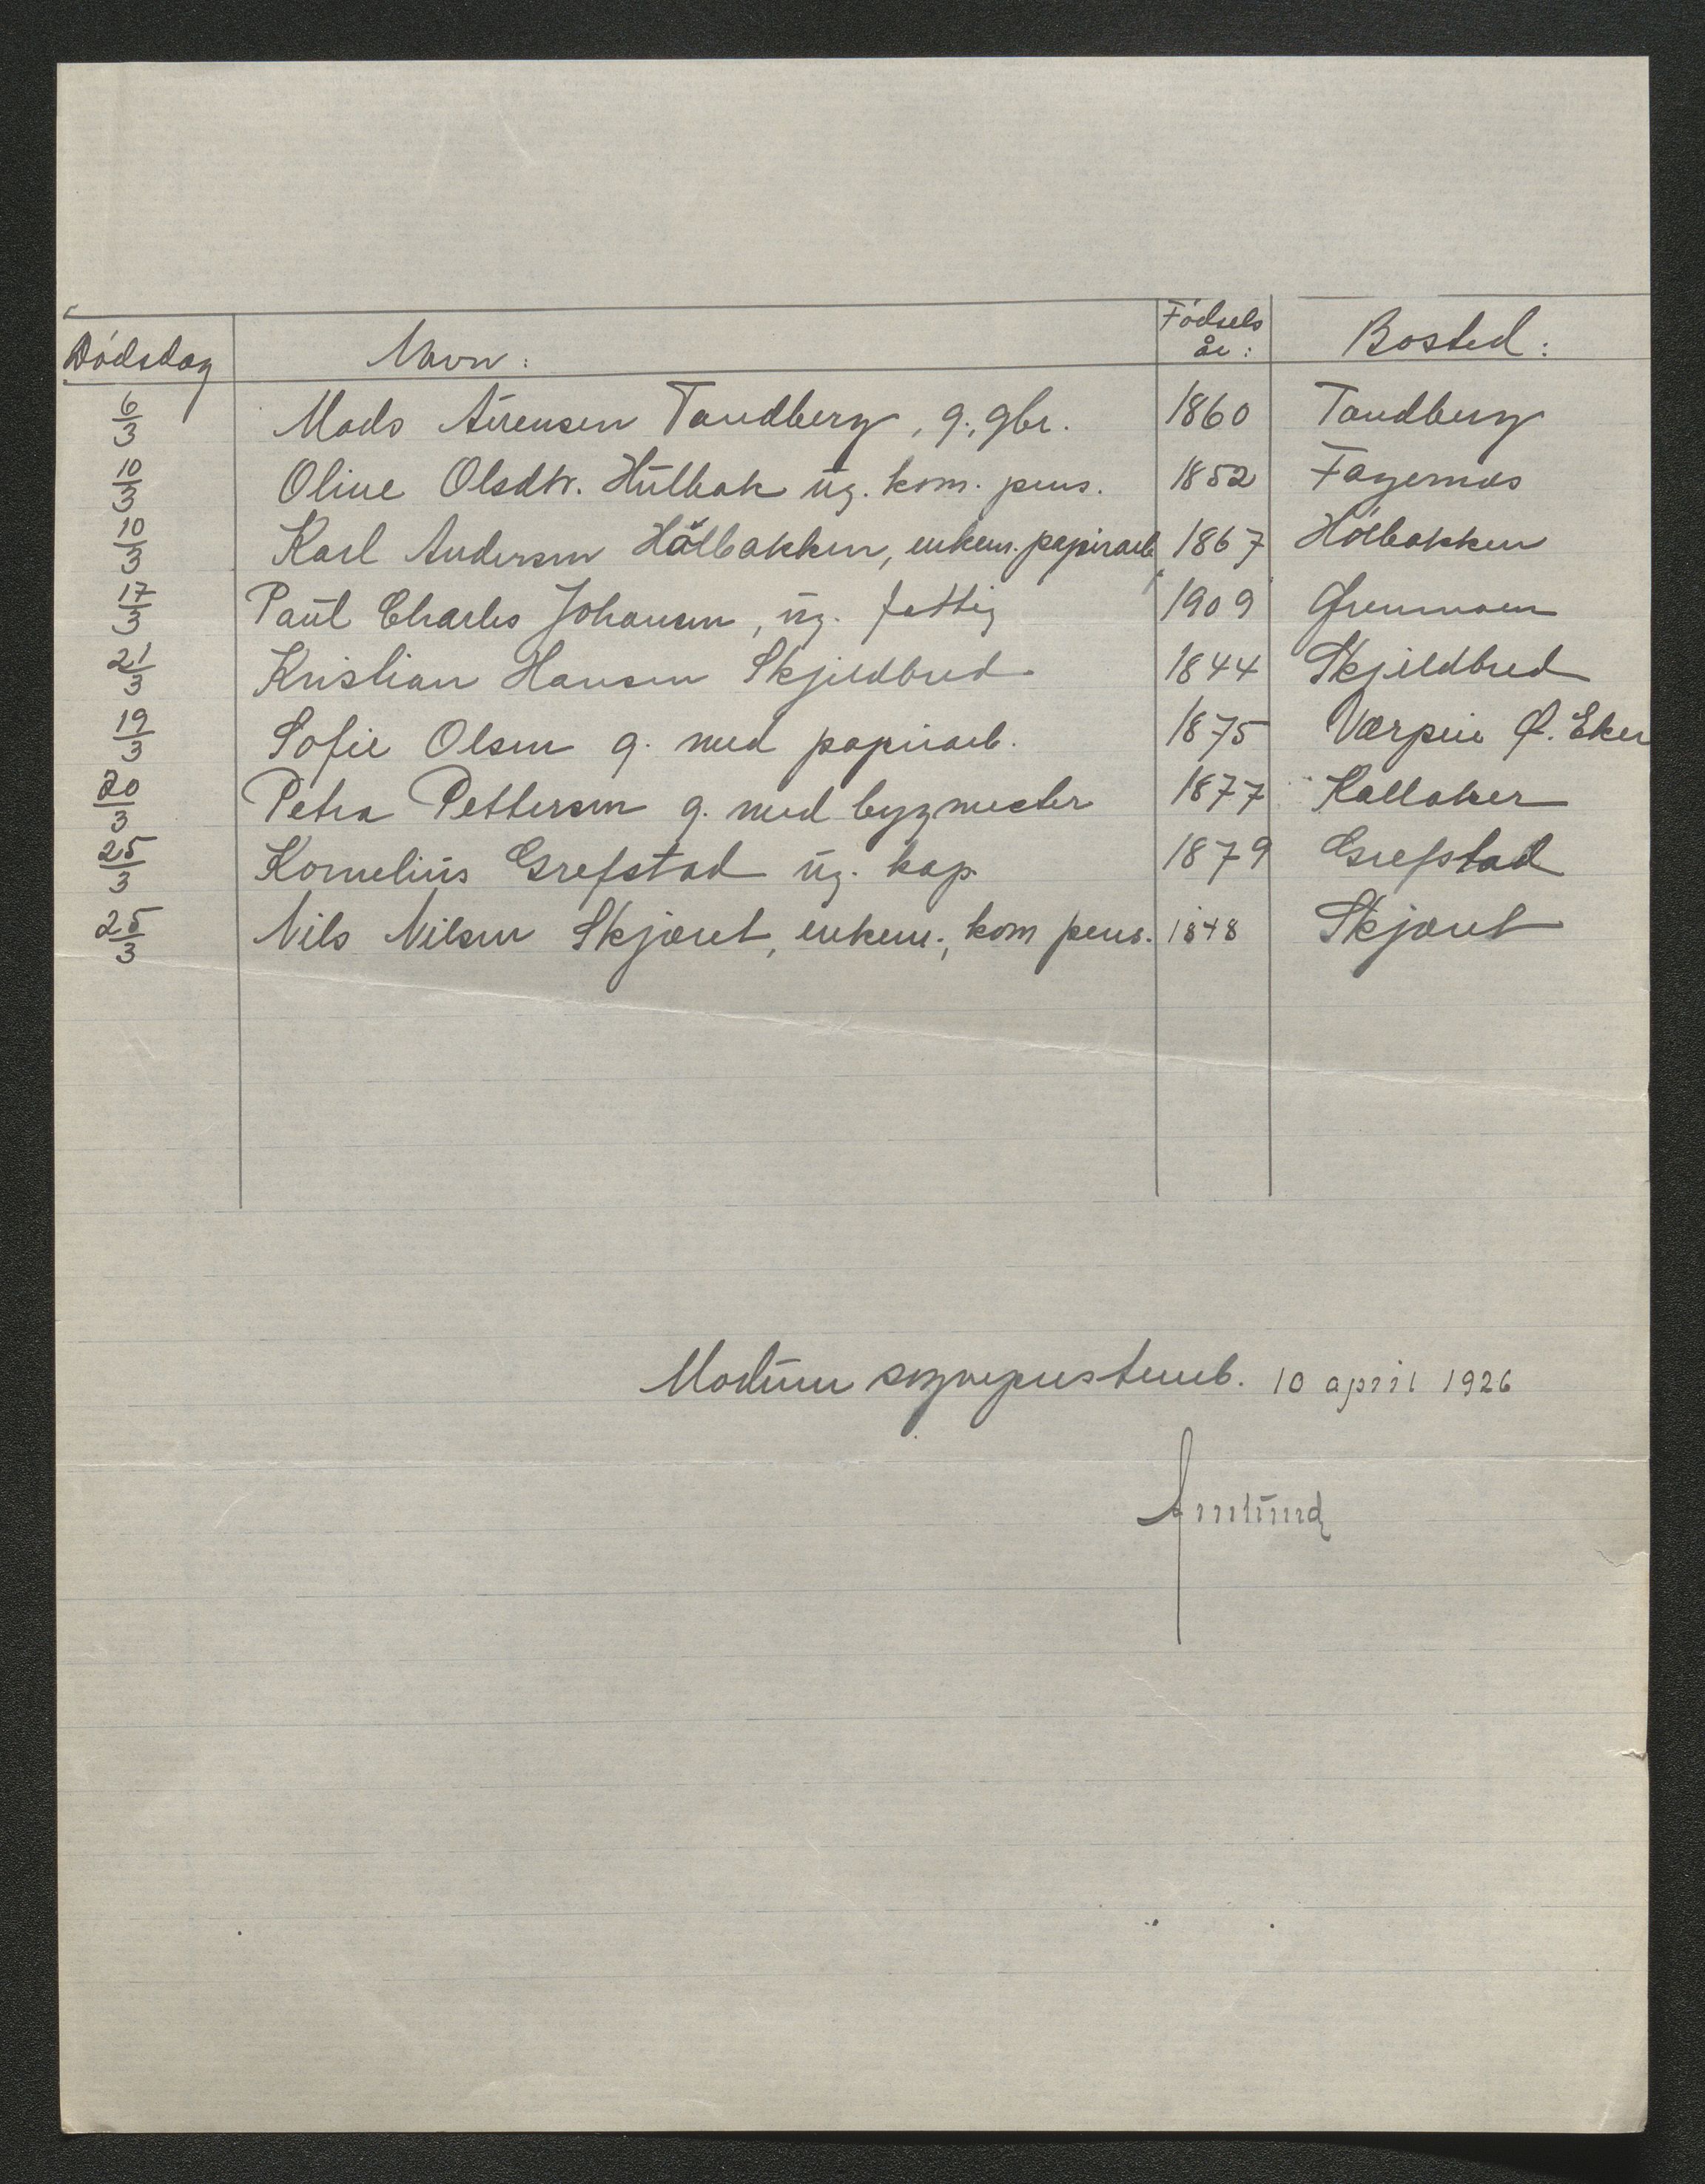 Dødsdag Navn: Fødsels år: Bosted:
6/3 Mads Sørensen Tandberg, g., gbr. 1860 Tandberg
10/3 Oline Olsdtr. Hulbak ug. kom. pens. 1852 Fagernæs
10/3 Karl Andersen Hålbakken, enkem. papirarb. 1867 Hólbakken
17/3 Paul Charles Johansen, ug. fattig 1909 Grenmoen
21/3 Kristian Hansen Skjeldbred 1844 Skjeldbred
19/3 Sofie Olsen g. med papirarb. 1875 Værpen Ø. Eker
20/3 Petra Pettersen g. med bygmester 1877 Kalloker
25/3 Kornelius Grefstad ug. kap. 1879 Grefstad
25/3 Nils Nilsen Skjæret, enkem., kom pens. 1848 Skjæret
Modum sogneprestemb. 10 april 1926